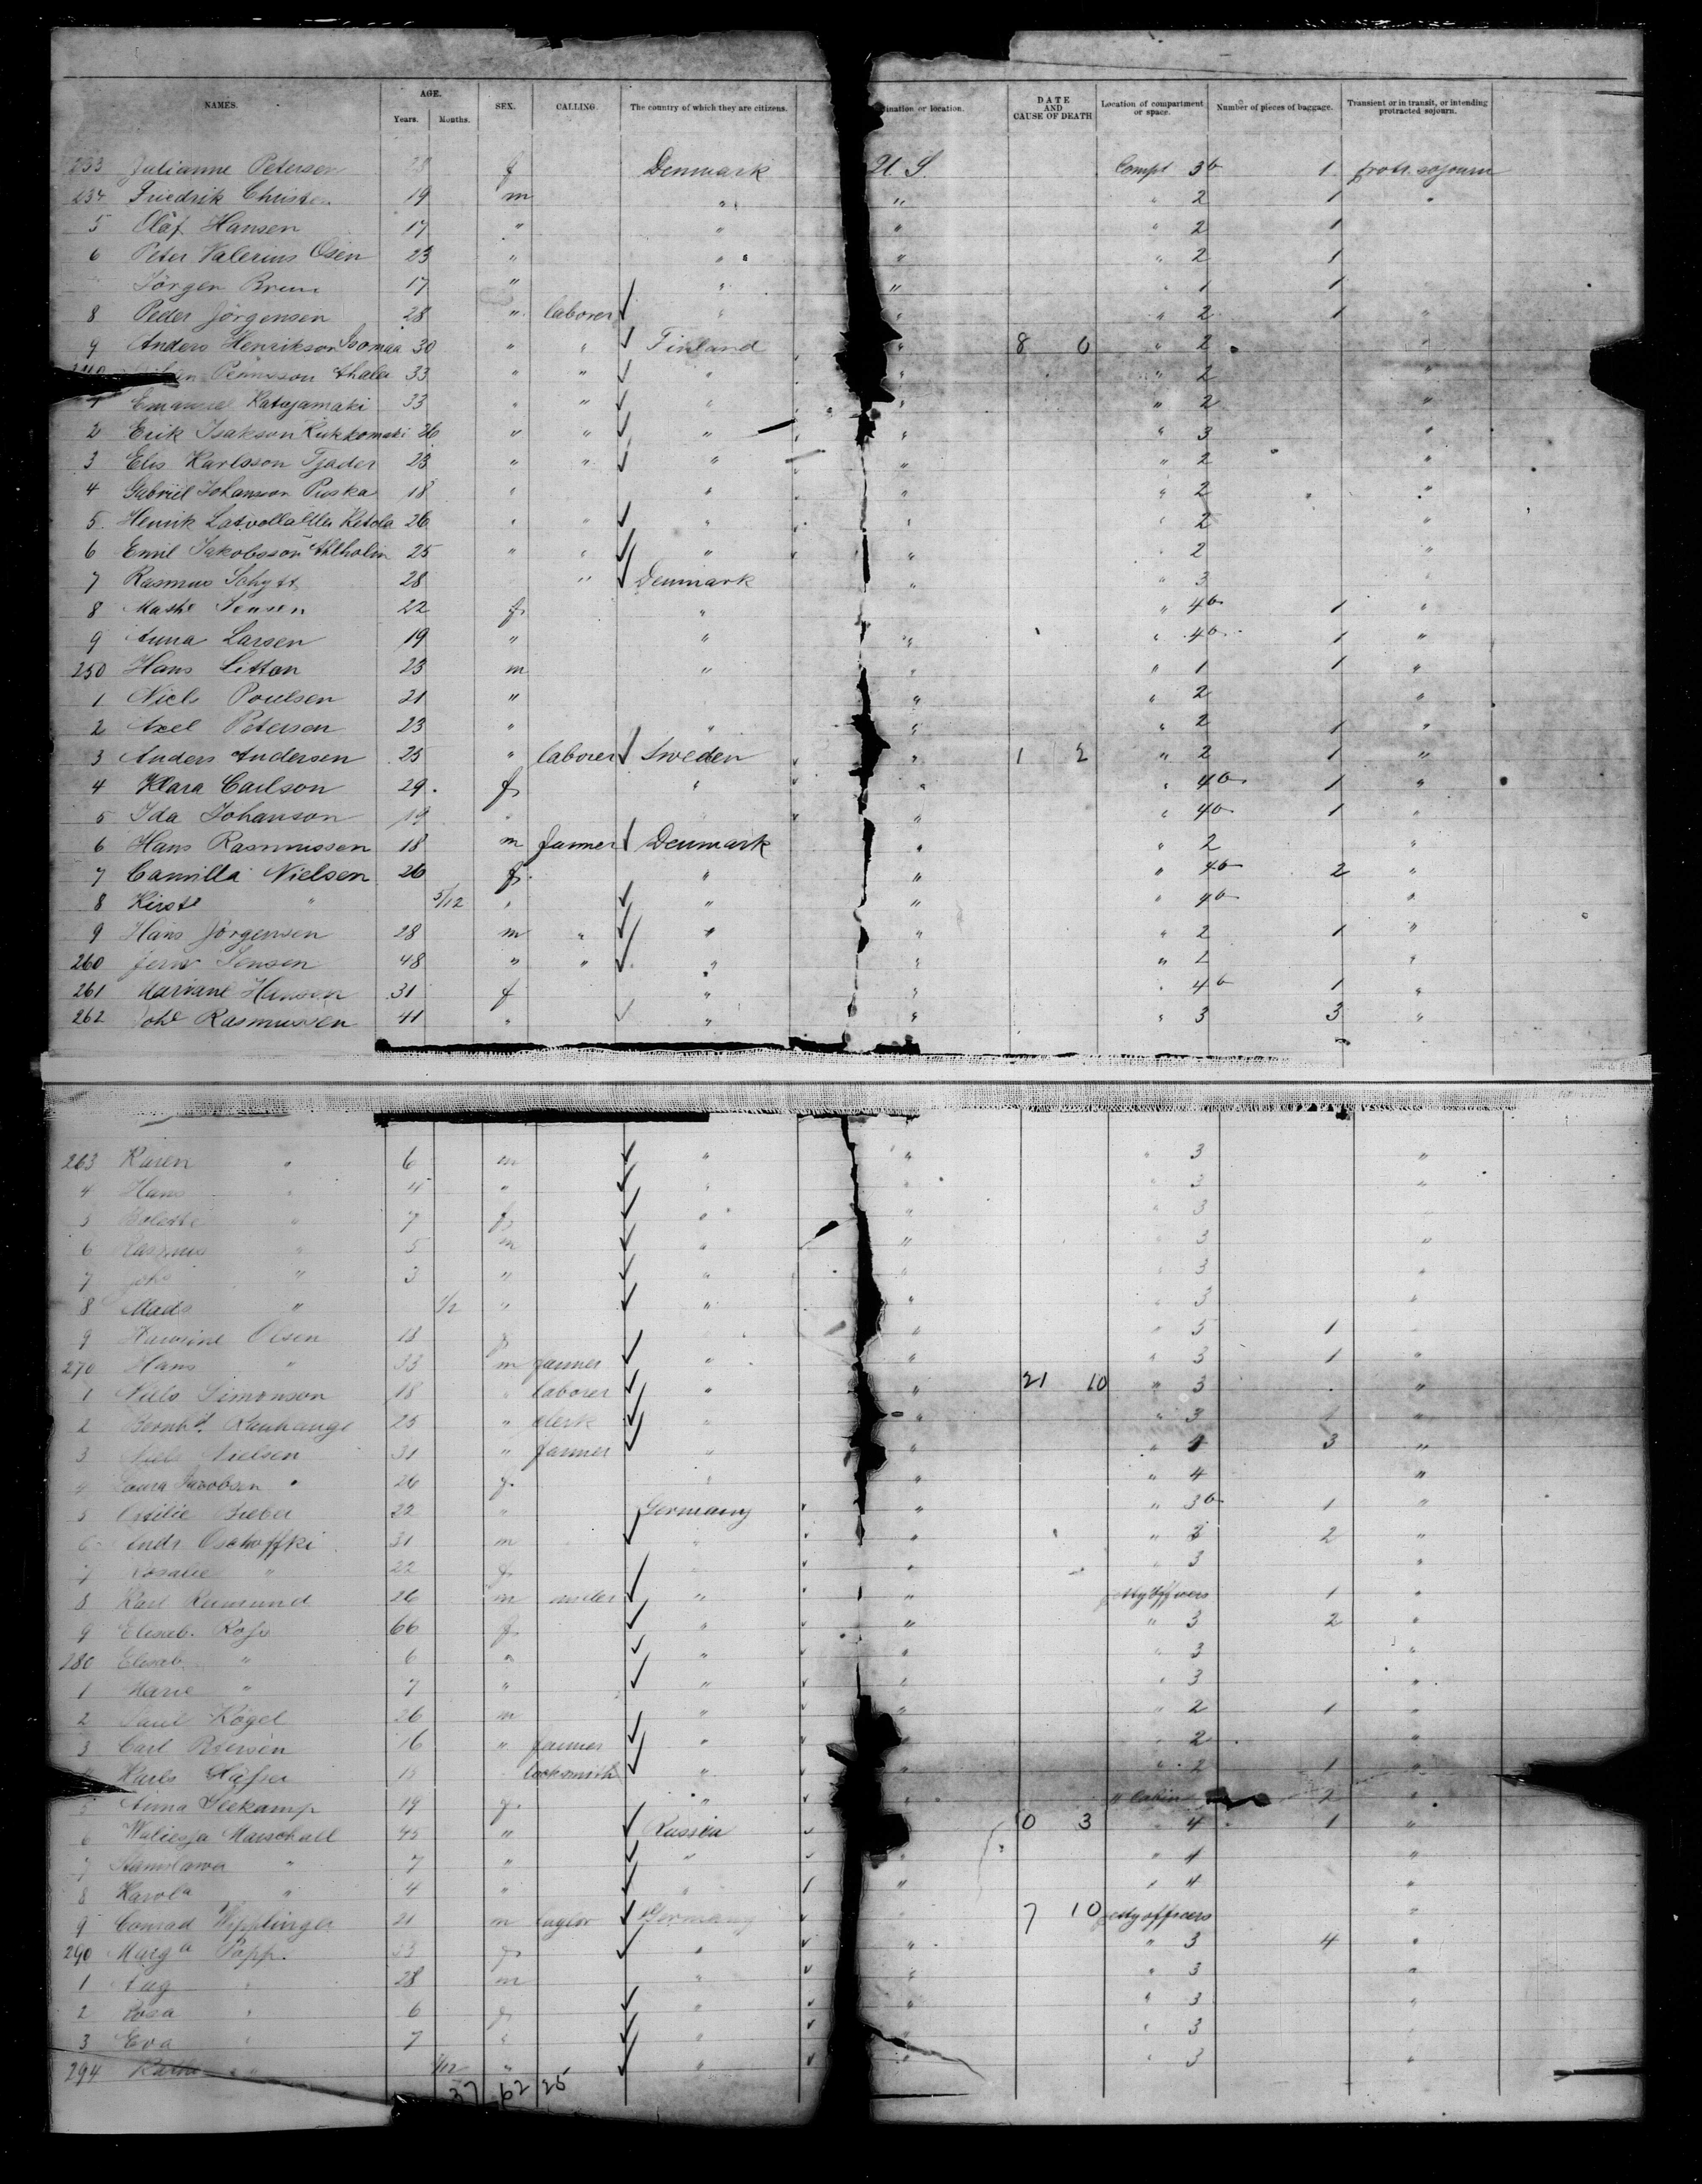 NAMES. AGE. Years. Months. SEX. CALLING. The country of which they are citizens. ination or location. DATE AND CAUSE OF DEATH Location of compartment or space. Number of pieces of baggage. Transient or in transit, or intending protracted sojourn.
233 Julianne Petersen 28 f Denmark U. S. Compt 3b 1 protr. sojourn
234 Friedrik Christen 19 m " " " 2 1 "
5 Olaf Hansen 17 " " " " 2 1
6 Peter Valerius Osen 23 " " " " 2 1
Jörgen Brun 17 " " " " 1 1
8 Peder Jörgensen 28 " laborer " " " 2 1 "
9 Anders Henrikson Isomaa 30 " " Finland " 8 0 " 2 "
33 " " " " " 2 "
Emanuel Katajamaki 33 " " " " " 2 "
2 Erik Isakson Kukkomaki 26 " " " " " 3 "
3 Elis Karlsson Tjader 23 " " " " " 2 "
4 Gabriel Johansson Puska 18 " " " " 2 "
5 Henrik Ketola 26 " " " " " 2 "
6 Emil Jakobsson Ahlholm 25 " " " " " 2 "
7 Rasmus Schytt 28 " Denmark " " 3 "
8 Jensen 22 f " " 4b 1 "
9 Anna Larsen 19 " " " " 4b 1 "
250 Hans Litton 23 m " " " 1 1 "
1 Niels Poulsen 21 " " " 2 "
2 Axel Petersen 23 " " " " 2 1 "
3 Anders Andersen 25 " laborer Sweden " 1 2 " 2 1 "
4 Klara Carlson 29 f " " " 4b 1 "
5 Ida Johanson 19 " " " 4b 1 "
6 Hans Rasmussen 18 m farmer Denmark " " 2 "
7 Camilla Nielsen 26 f " " " 4b 2 "
8 Kirste " 5/12 " " " " 4b "
9 Hans Jörgensen 28 m " " " " 2 1 "
260 Jens Jensen 48 " " " " " 2 "
261 Mariane Hansen 31 f " " " 4b 1 "
262 Rasmussen 41 " " " " 3 3 "
263 Karen " 6 m " " " 3 "
4 Hans " 4 " " " " 3 "
5 Bolette " 7 f " " " 3
6 Rasmus " 5 m " " 3 "
7 " 3 " " " " 3 "
8 Mads " 1/2 " " " " 3 "
9 Olsen 18 f " " 5 1
270 Hans " 33 m farmer " " " 3 1 "
1 Niels Simonson 18 " laborer " " 21 10 " 3 "
2 25 " clerk " " " 3 1 "
3 Niels Nielsen 31 " farmer " " " 3 "
4 Laura Jacobsen " 26 f " " " 4 "
5 Ottilie Bieber 22 " Germany " " 3b 1 "
6 Andr. Oschoffki 31 m " " 3 2 "
7 Rosalie " 22 f " " 3 "
8 Karl 26 m " " petty officers 1 "
9 Elisab. 66 f " " " 3 2 "
280 Elisab. " 6 " " " " 3 "
1 Marie " 7 " " " " 3 "
2 Paul Kögel 26 m " " " 2 1 "
3 Carl Petersen 16 " farmer " " 2 "
Karls locksmith " " " 2 1 "
5 Anna Seekamp 19 f " " " cabin 2 "
6 Marschall 45 " Russia 0 3 " 4 1 "
7 Stanislawa " 7 " " " " 4 "
8 Karola " 4 " " " " 4 "
9 Conrad Wipplinger 21 m taylor Germany 7 10 petty officers "
290 Marga Papp. f " " " 3 4 "
1 " 28 m " " " 3 "
2 Rosa " 6 f " " " 3 "
3 Eva " 7 " " " " 3
294 " " " " " 3 "
37 62 25